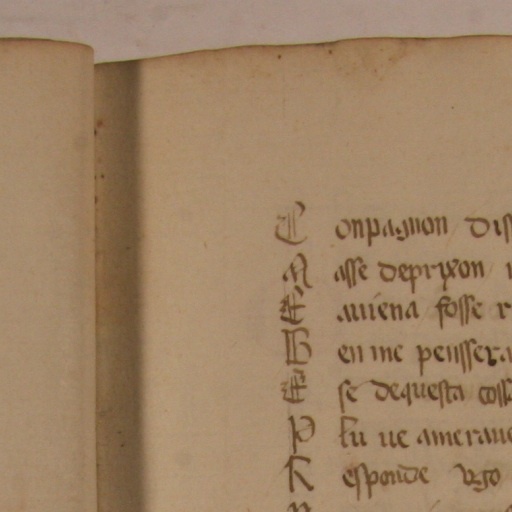 C onpagnon dis
A asse deprixon
E aviena fosse r
B en me pensera
E se dequesta coss
P lu ve amerave
R esponde vgo